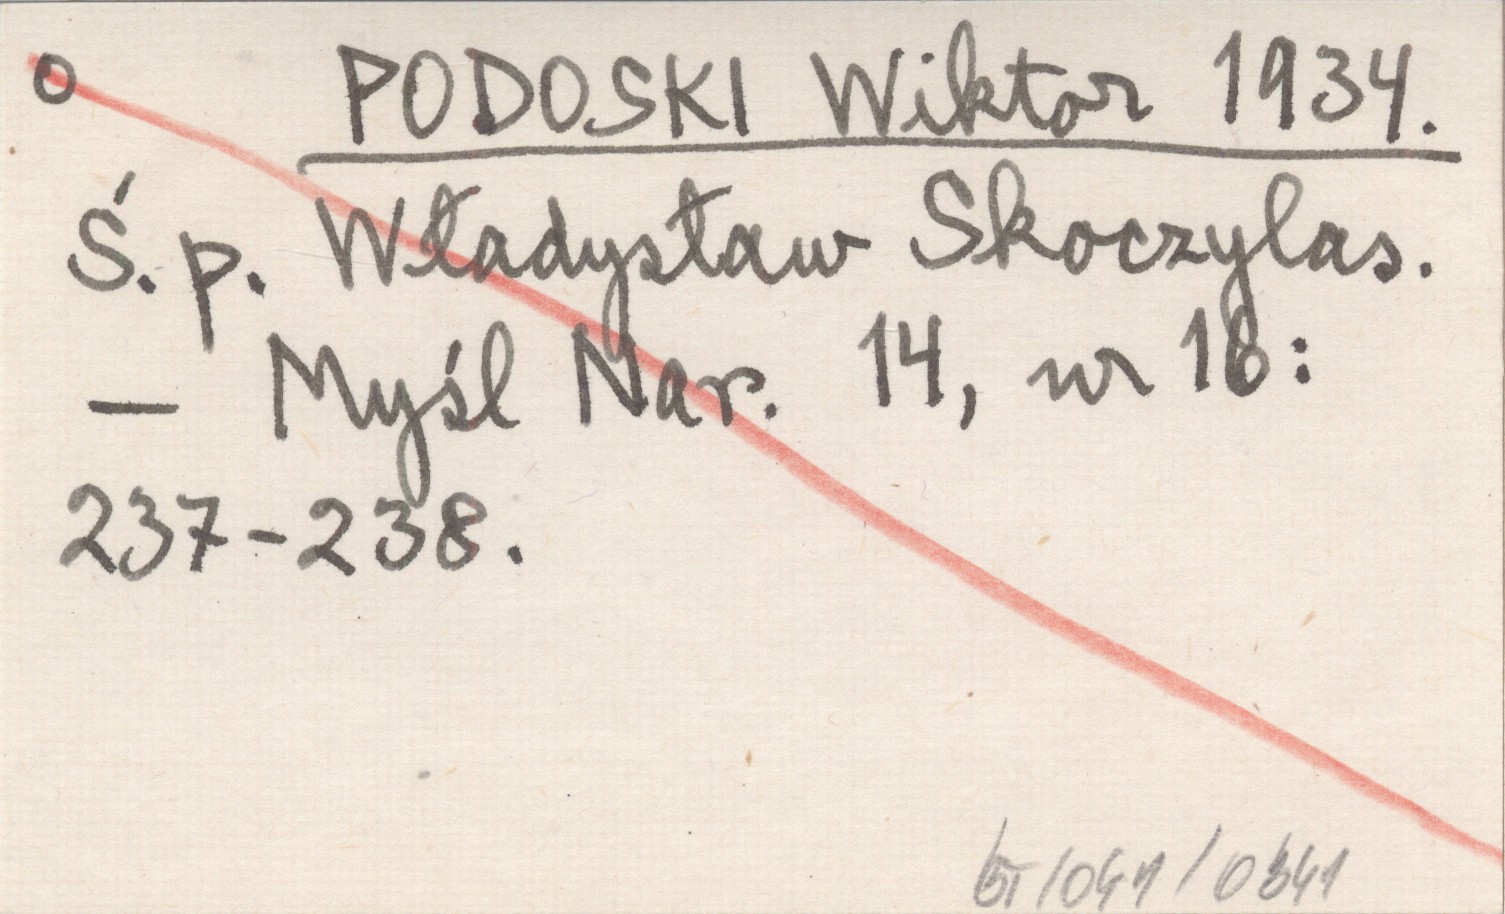 o PODOSKI Wiktor 1934.
Ś. p. Władysław Skoczylas.
— Myśl Nar. 14, nr 16:
237-238.